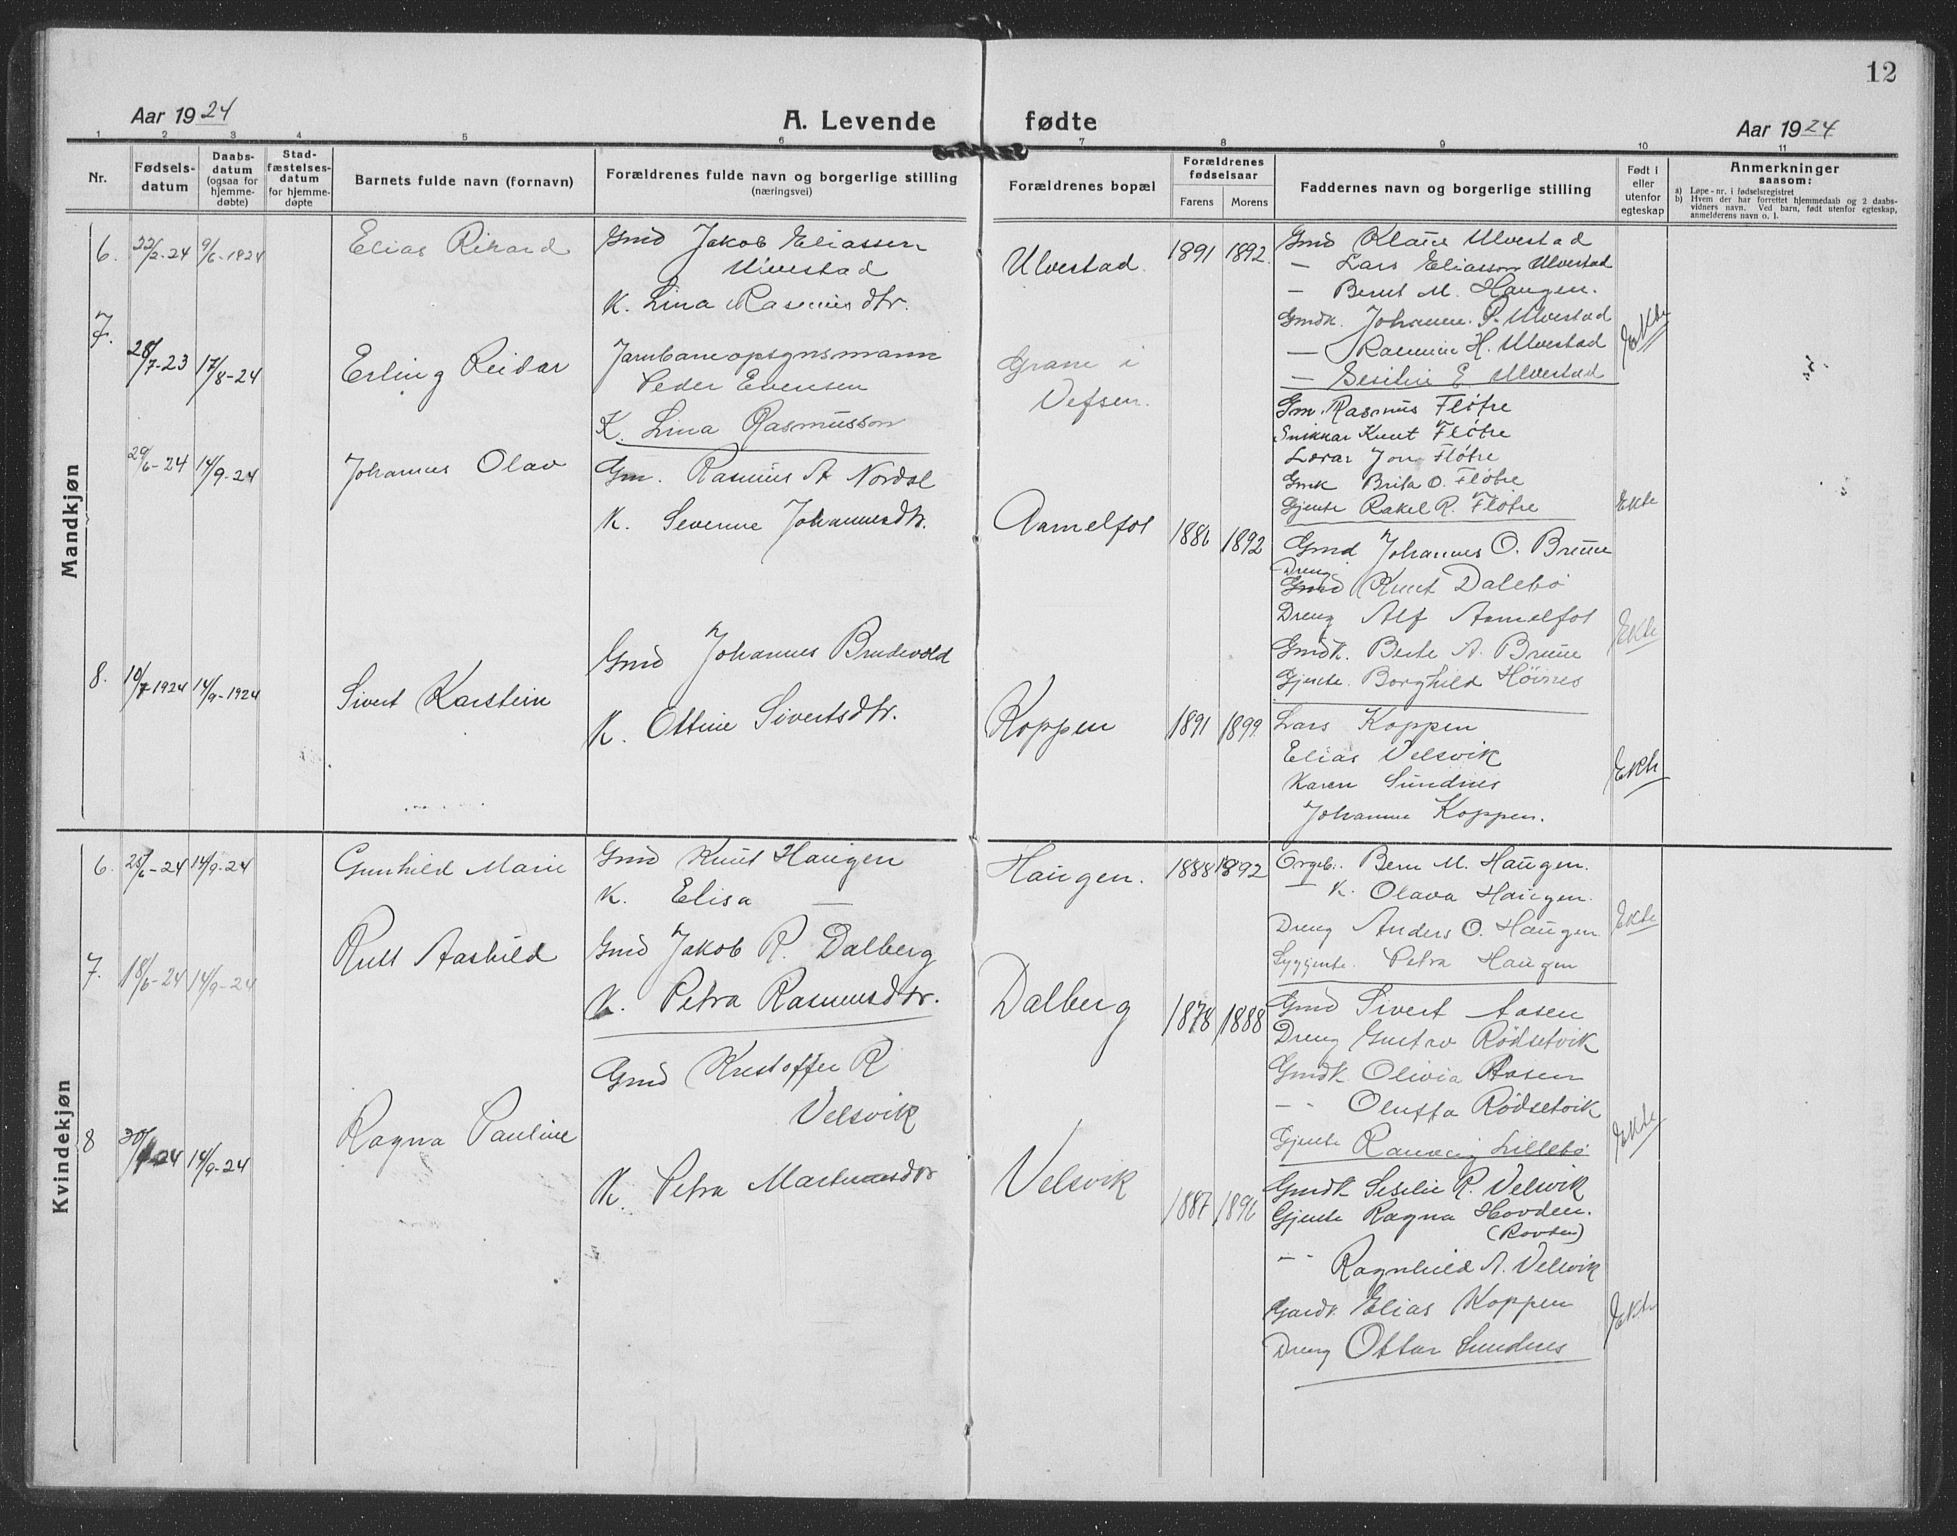 12
Aar 1924
A. Levende
fødte
Aar 1924
1 2 3 4 5 6 7 8 9 10 11
Nr.
Fødsels-
datum
Daabs-
datum
(ogsaa for
hjemme-
døbte)
Stad-
fæstelses-
datum
for hjemme-
døpte
Barnets fulde navn (fornavn)
Forældrenes fulde navn og borgerlige stilling
(næringsvei)
Forældrenes bopæl
Forældrenes
fødselsaar
Farens Morens
Faddernes navn og borgerlige stilling
Født i
eller
utenfor
egteskap
Anmerkninger
saasom:
a) Løpe-nr. i fødselsregistret
b) Hvem der har forrettet hjemmedaab og 2 daabs-
vidners navn. Ved barn, født utenfor egteskap,
anmelderens navn o. l.
Mandkjøn
6. 22/2-24 9/6-1924 Elias Rikard
Gmd Jakob Eliassen
Ulvestad
K. Lina Rasmusdtr.
Ulvestad. 1891 1892.
Gmd Klaus Ulvestad
— Lars Eliassen Ulvestad
— Bernt M. Haugen.
Gmdk. Johanne P. Ulvestad
— Rasmine H. Ulvestad
— Sesilie E. Ulvestad
Ekte
7. 28/7-23 17/8-24 Erling Reidar
Jarnbaneopsynsmann
Peder Evensen
K. Lina Rasmusson
Grane i
Vefsen.
Gm. Rasmus Fløtre
Snikkar Knut Fløtre
Lærar Jon Fløtre
Gmk Brita O. Fløtre
Gjente Rakel R. Fløtre
Ekte
29/6-24 14/9-24 Johannes Olav
Gm. Rasmus A Nordal
K. Severine Johannesdtr.
Aamelfot 1886 1892
Gmd Johannes O. Brune
Dreng
Gmd Knut Dalebø
Dreng Alf Aamelfot
Gmdk. Berte A. Brune
Gjente. Borghild Høines
Ekte
8. 10/7-1924 14/9-1924 Sivert Karstein
Gmd Johannes Brudevold
K. Ottine Sivertsdtr.
Koppen 1891 1899
Lars Koppen
Elias Velsvik
Karen Sundnes
Johanne Koppen.
Ekte
Kvindekjøn
6. 25/6-24 14/9-24 Gunhild Marie
Gmd Knut Haugen
K. Elisa —
Haugen. 1888 1892
Orgeb. Bern M. Haugen.
— K. Olava Haugen.
Dreng Anders O. Haugen
Sygjente. Petra Haugen
Ekte
7. 18/6-24 14/9-24 Rutt Aashild
Gmd Jakob R. Dalberg
K. Petra Rasmusdtr.
Dalberg 1878 1888
Gmd Sivert Aasen
Dreng Gustav Rødsetvik
Gmdk Olivia Aasen
— - Oluffa Rødsetvik
Gjente Ranveig Lillebø
Ekte
8 30/ -24 14/9-24 Ragna Pauline
Gmd Kristoffer R
Velsvik
K. Petra Martinusdtr
Velsvik 1887 1896
Gmdk Sesilie R. Velsvik
Gjente Ragna Hovden.
(Rovden)
— - Ragnhild A. Velsvik
Gardk. Elias Koppen
Dreng Ottar Sundnes
Ekte